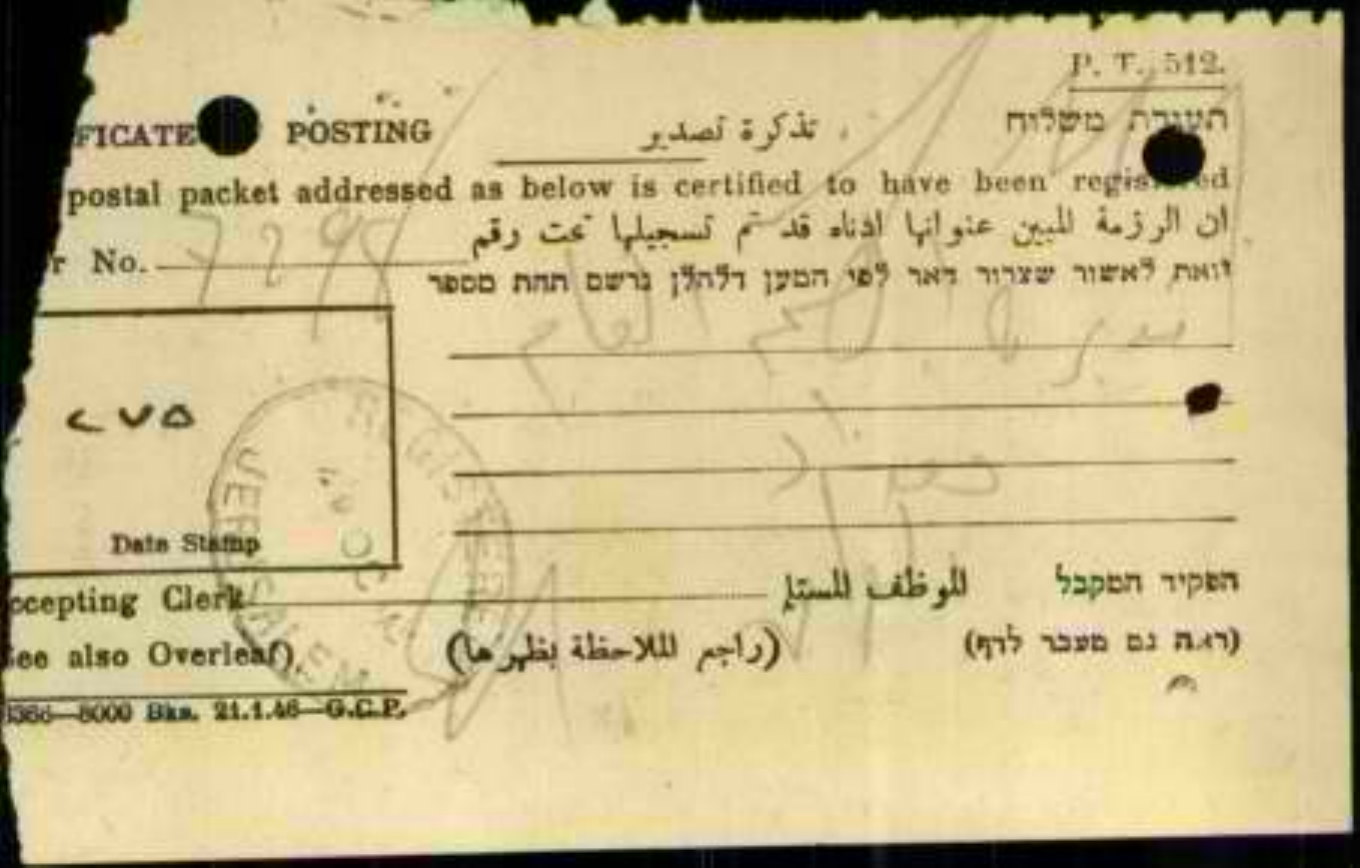 P. T. 512.
FICATE POSTING تذكرة تصدير תעודת משלוח
postal packet addressed as below is certified to have been registered
ان الرزمة المبين عنوانها ادناه قد تم تسجيلها تحت رقم
r No. 7295
זואת לאשור שצרור דאר לפי המען דלהלן נרשם תחת מספר
مدير
العام
٢٧٥
بغداد
REGISTERED
JERUSALEM
Date Stamp
ccepting Clerk للوظف المستلم הפקיד המקבל
See also Overleaf) (راجع الملاحظة بظهرها) (ראה גם מעבר לדף)
8000 Bks. 21.1.46—G.C.P.